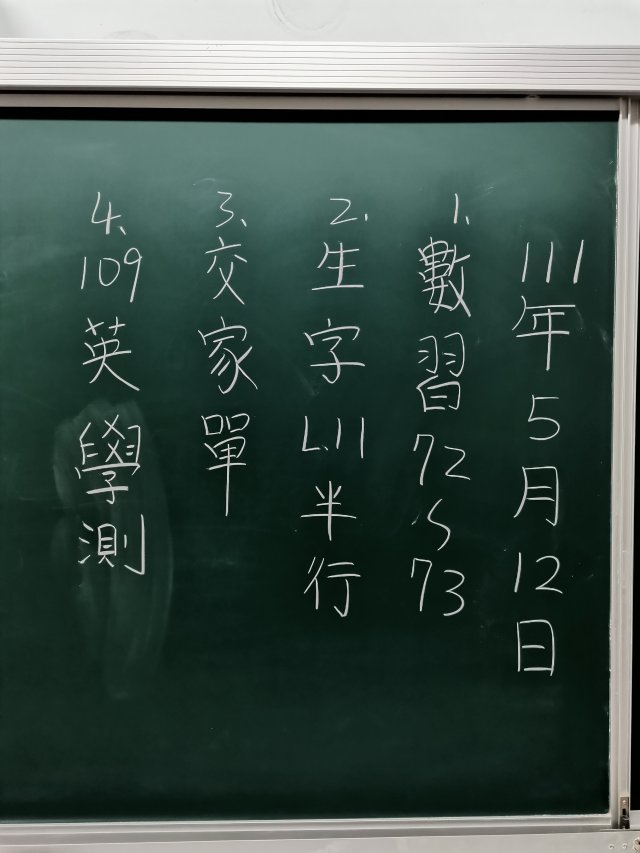 111年5月12日
1.數習72~73
2.生字L11半行
3、交家單
4、109英學測